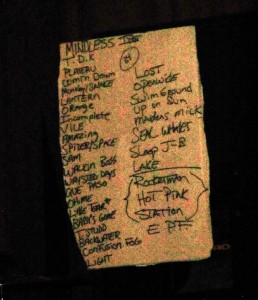 MINDLESS
I D.K
PLATEAU
COMIN DOWN
MONKEY/SNAKE
LANTERN
ORANGE
INCOMPLETE
VILE
AMAZING
SPIDER/SPACE
SAM
WALKIN BOSS
WASTED DAYS
QUE PASO
OH ME
LIKE FEAR
BABY'S GONE
I STUDD
BACKWATER
CONFUSION FOG
LIGHT
LOST
OPEN WIDE
SWIM GROUND
UP ON SUN
MAIDENS MILK
SEAL WHALES
SLOOP J-B
LAKE
ROCKETMAN
HOT PINK
STATION
E PF